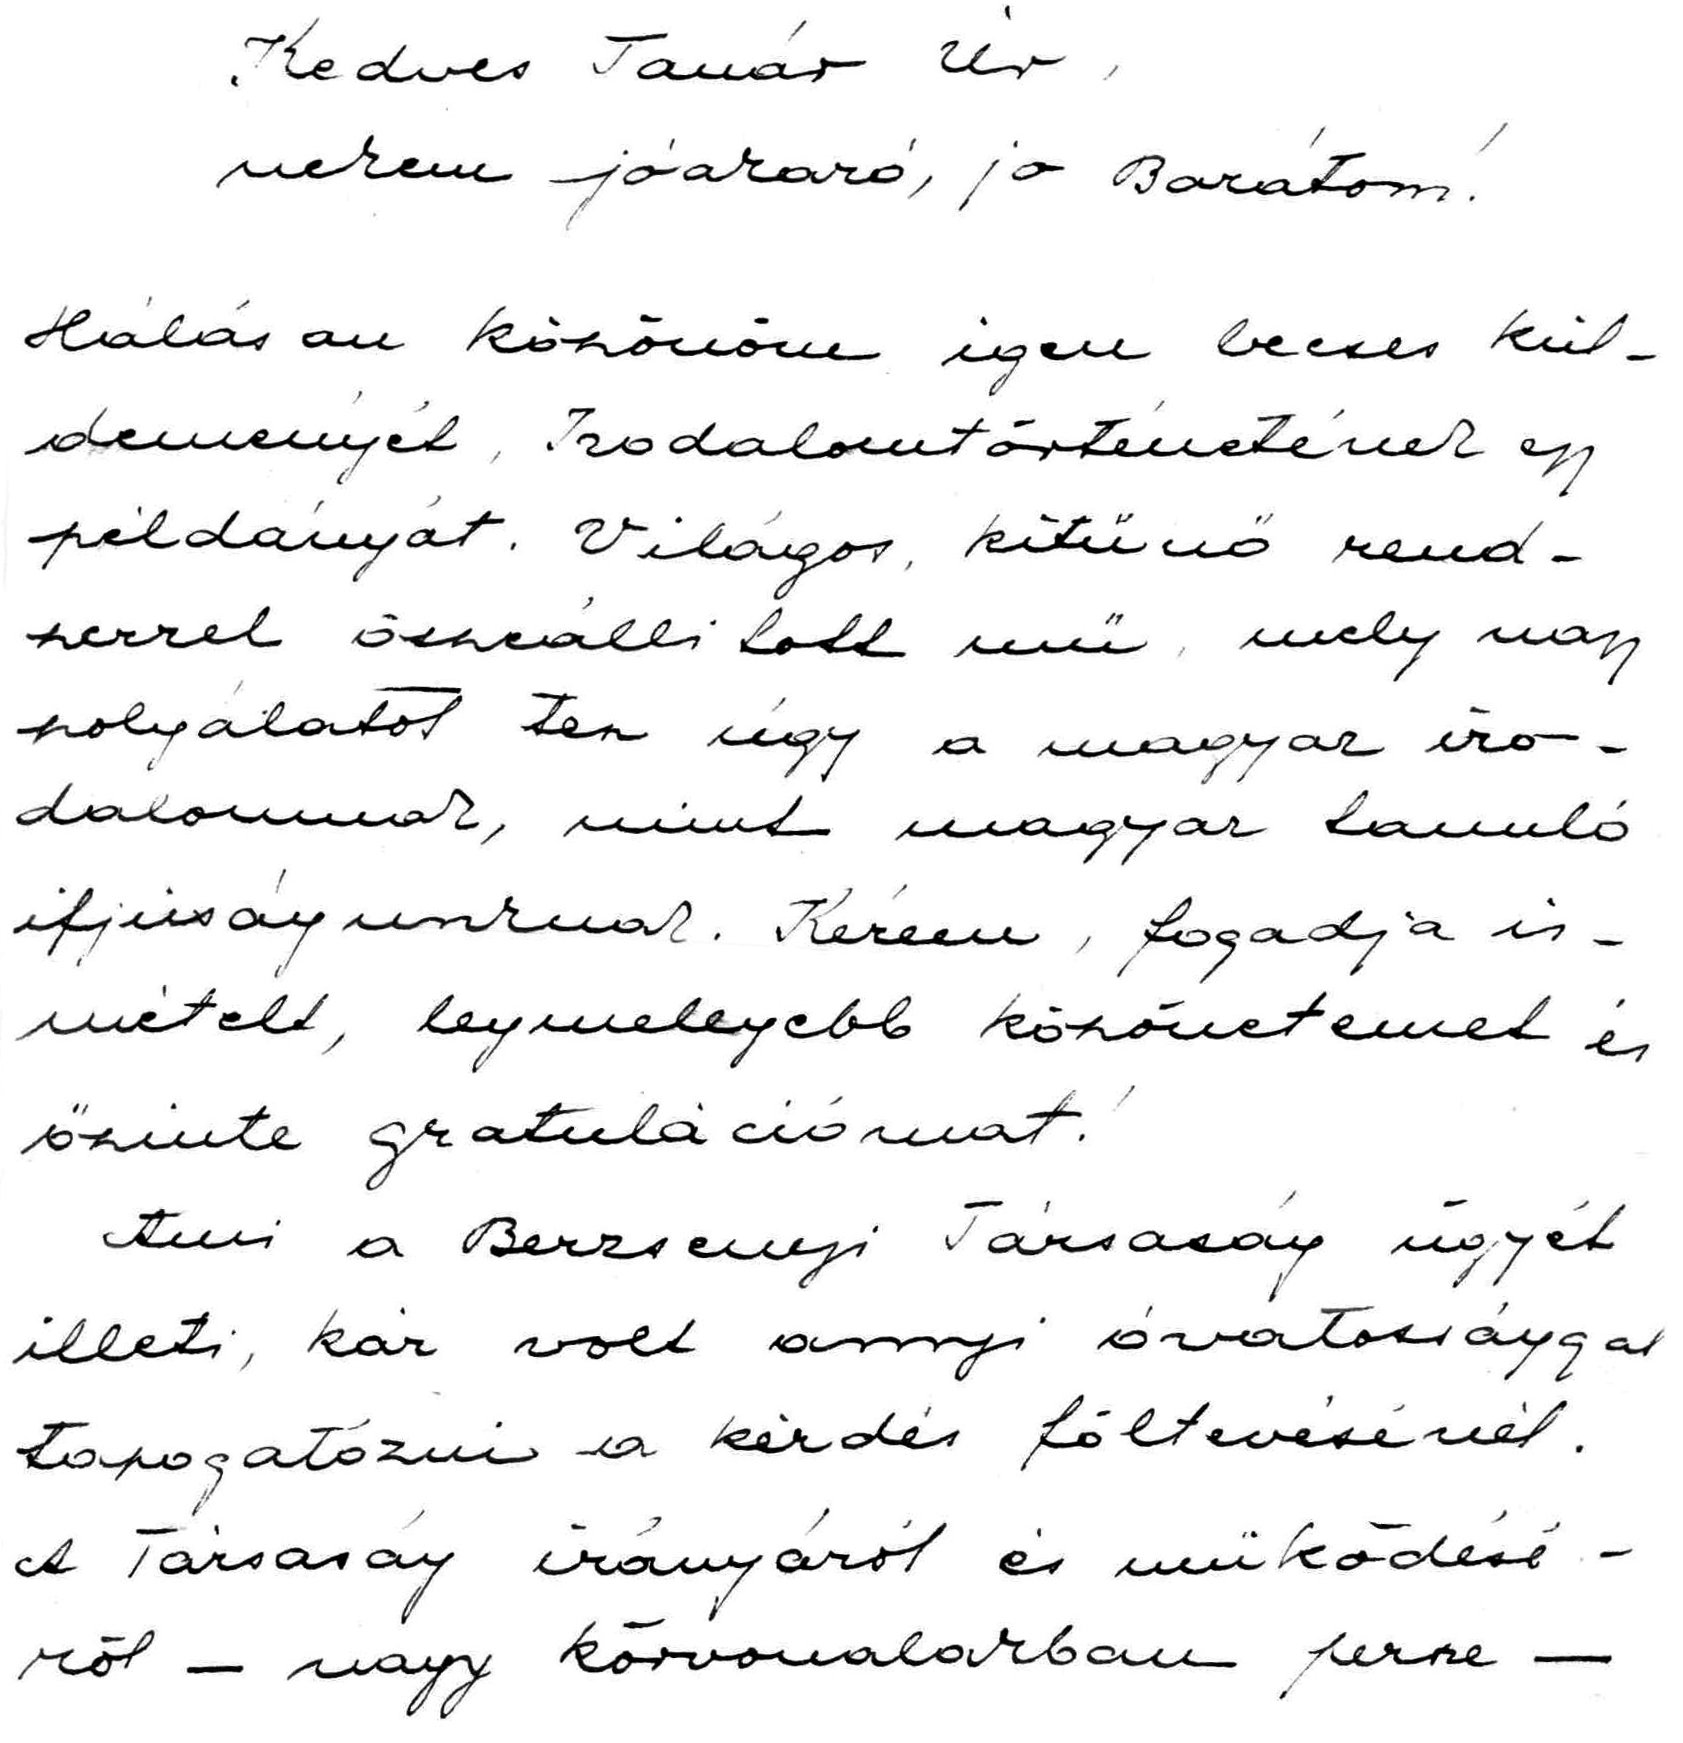 Kedves Tanár Úr,
nekem jóakaró, jó Barátom!
Hálásan köszönöm igen becses kül-
deményét, Irodalomtörténetének egy
példányát. Világos, kitűnő rend-
szerrel összeállított mű, mely nagy
szolgálatot tesz úgy a magyar iro-
dalomnak, mint magyar tanuló
ifjúságunknak. Kérem, fogadja is-
mételt, legmelegebb köszönetemet és
őszinte gratulációmat!
Ami a Berzsenyi Társaság ügyét
illeti, kár volt annyi óvatossággal
tapogatózni a kérdés föltevésénél.
A Társaság irányáról és működésé-
ről — nagy körvonalakban persze —